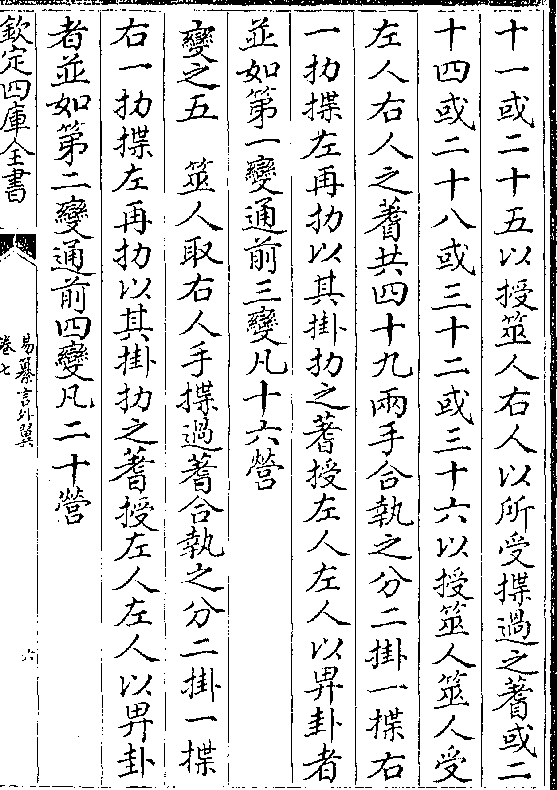 十一或二十五以授筮人右人以所受揲過之蓍或二
十四或二十八或三十二或三十六以授筮人筮人受
左人右人之蓍共四十九兩手合執之分二掛一揲右
一扐揲左再扐以其掛扐之蓍授左人左人以畀卦者
並如第一變通前三變凡十六營
變之五　筮人取右人手揲過蓍合執之分二掛一揲
右一扐揲左再扐以其掛扐之蓍授左人左人以畀卦
者並如第二變通前四變凡二十營
欽定四庫全書
易纂言外翼
卷七
六